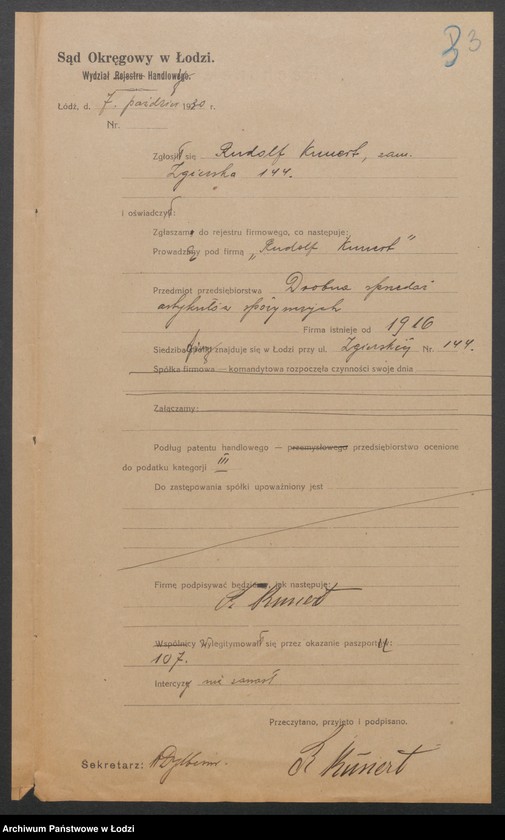 3 3
Sąd Okręgowy w Łodzi.
Wydział Rejestru Handlowego.
Łódź, d. 7. paździer 1920 r.
Nr.
Zgłosił się Rudolf Kunert, zam.
Zgierska 144.
i oświadczył:
Zgłaszam do rejestru firmowego, co następuje:
Prowadzę pod firmą „Rudolf Kunert"
Przedmiot przedsiębiorstwa Drobna sprzedaż
artykułów spożywczych
Firma istnieje od 1916
Siedziba firmy znajduje się w Łodzi przy ul. Zgierskiej Nr. 144.
Spółka firmowa — komandytowa rozpoczęła czynności swoje dnia
Załączamy:
Podług patentu handlowego — przemysłowego przedsiębiorstwo ocenione
do podatku kategorji III
Do zastępowania spółki upoważniony jest
Firmę podpisywać będzie, jak następuje:
R. Kunert
Wspólnicy Wylegitymował się przez okazanie paszportu:
107.
Intercyzy nie zawarł
Przeczytano, przyjęto i podpisano.
Sekretarz:
R. Kunert
Archiwum Państwowe w Łodzi